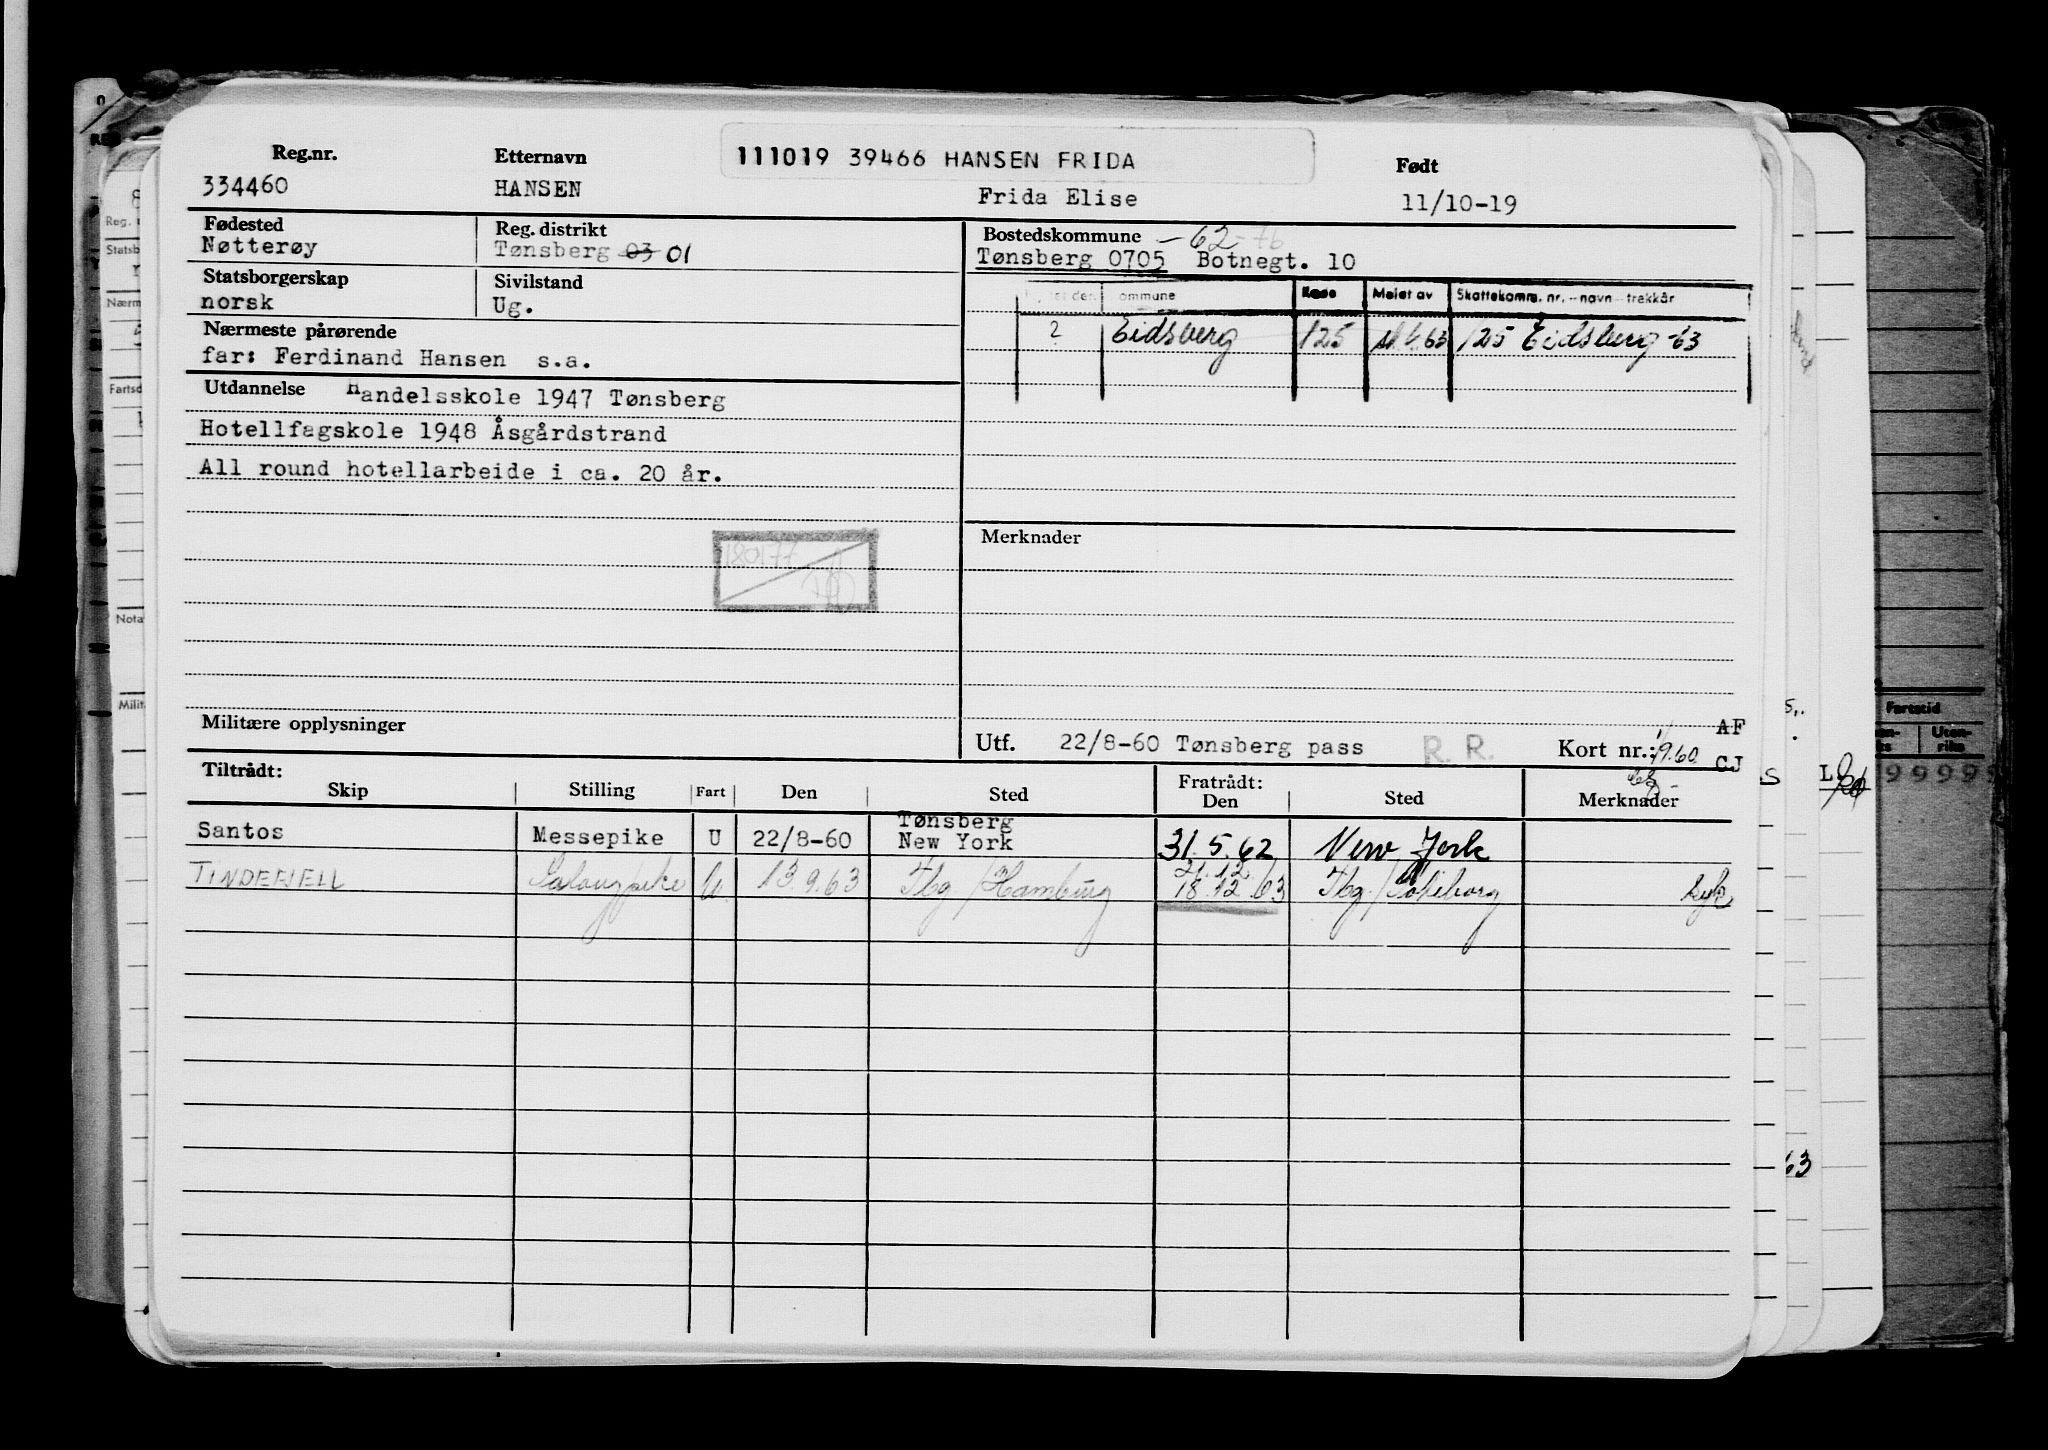 111019 39466 HANSEN FRIDA
Reg.nr. Etternavn Født
334460 HANSEN Frida Elise 11/10-19
Fødested Reg. distrikt Bostedskommune -62-76
Nøtterøy Tønsberg 03 01 Tønsberg 0705 Botnegt. 10
Statsborgerskap Sivilstand
norsk Ug.
ommune Kode Meldt av Skattekomm. nr. - navn - trekkår
2 Eidsberg 125 63 125 Eidsberg -63
Nærmeste pårørende
far: Ferdinand Hansen s.a.
Utdannelse Handelsskole 1947 Tønsberg
Hotellfagskole 1948 Åsgårdstrand
All round hotellarbeide i ca. 20 år.
180177
Merknader
Militære opplysninger
Utf. 22/8-60 Tønsberg pass R. R. Kort nr.: 1/9.60 AF
CJ
Tiltrådt: Fratrådt:
Skip Stilling Fart Den Sted Den Sted Merknader
Santos Messepike U 22/8-60 Tønsberg
New York 31.5.62 New York
TINDEFJELL Salongpike U 13.9.63 Tbg/Hamburg 21.12
18.12.63 Tbg/Göteborg syk
Fartstid
Uten-
riks
9999
63